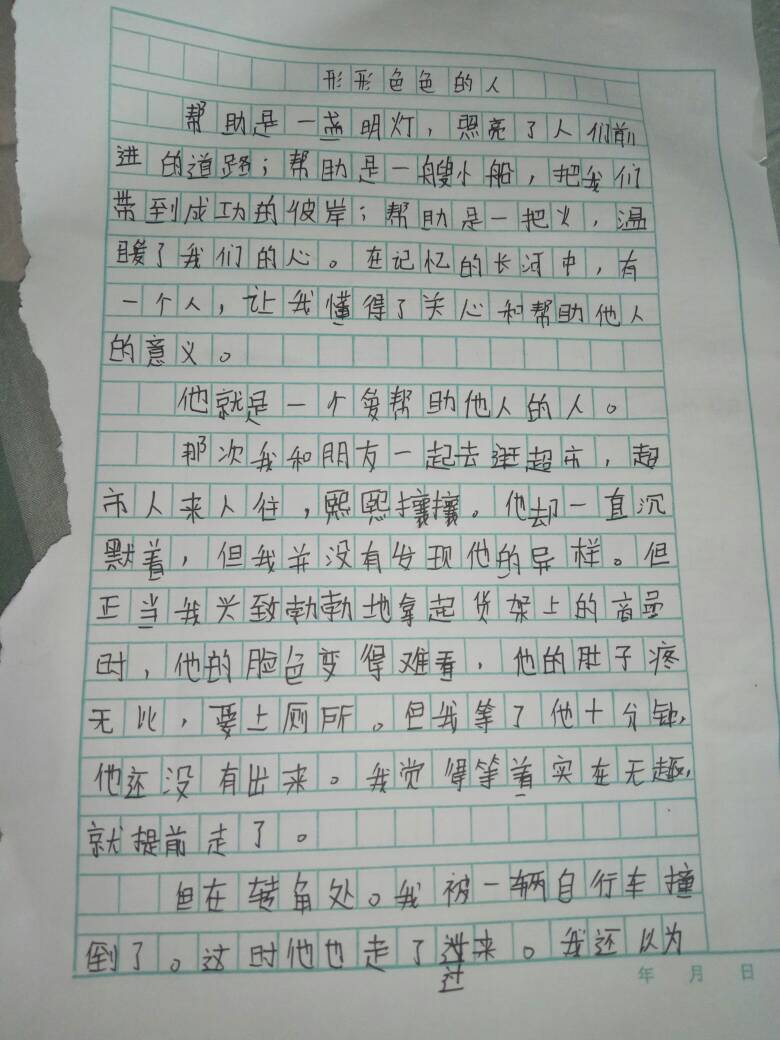 形形色色的人
帮助是一盏明灯，照亮了人们前
进的道路；帮助是一艘小船，把我们
带到成功的彼岸；帮助是一把火，温
暖了我们的心。在记忆的长河中，有
一个人，让我懂得了关心和帮助他人
的意义。
他就是一个爱帮助他人的人。
那次我和朋友一起去逛超市，超
市人来人往，熙熙攘攘。他却一直沉
默着，但我并没有发现他的异样。但
正当我兴致勃勃地拿起货架上的商品
时，他的脸色变得难看，他的肚子疼
无比，要上厕所。但我等了他十分钟，
他还没有出来。我觉得等着实在无趣，
就提前走了。
但在转角处。我被一辆自行车撞
倒了。这时他也走了过来。我还以为
过
年 月 日